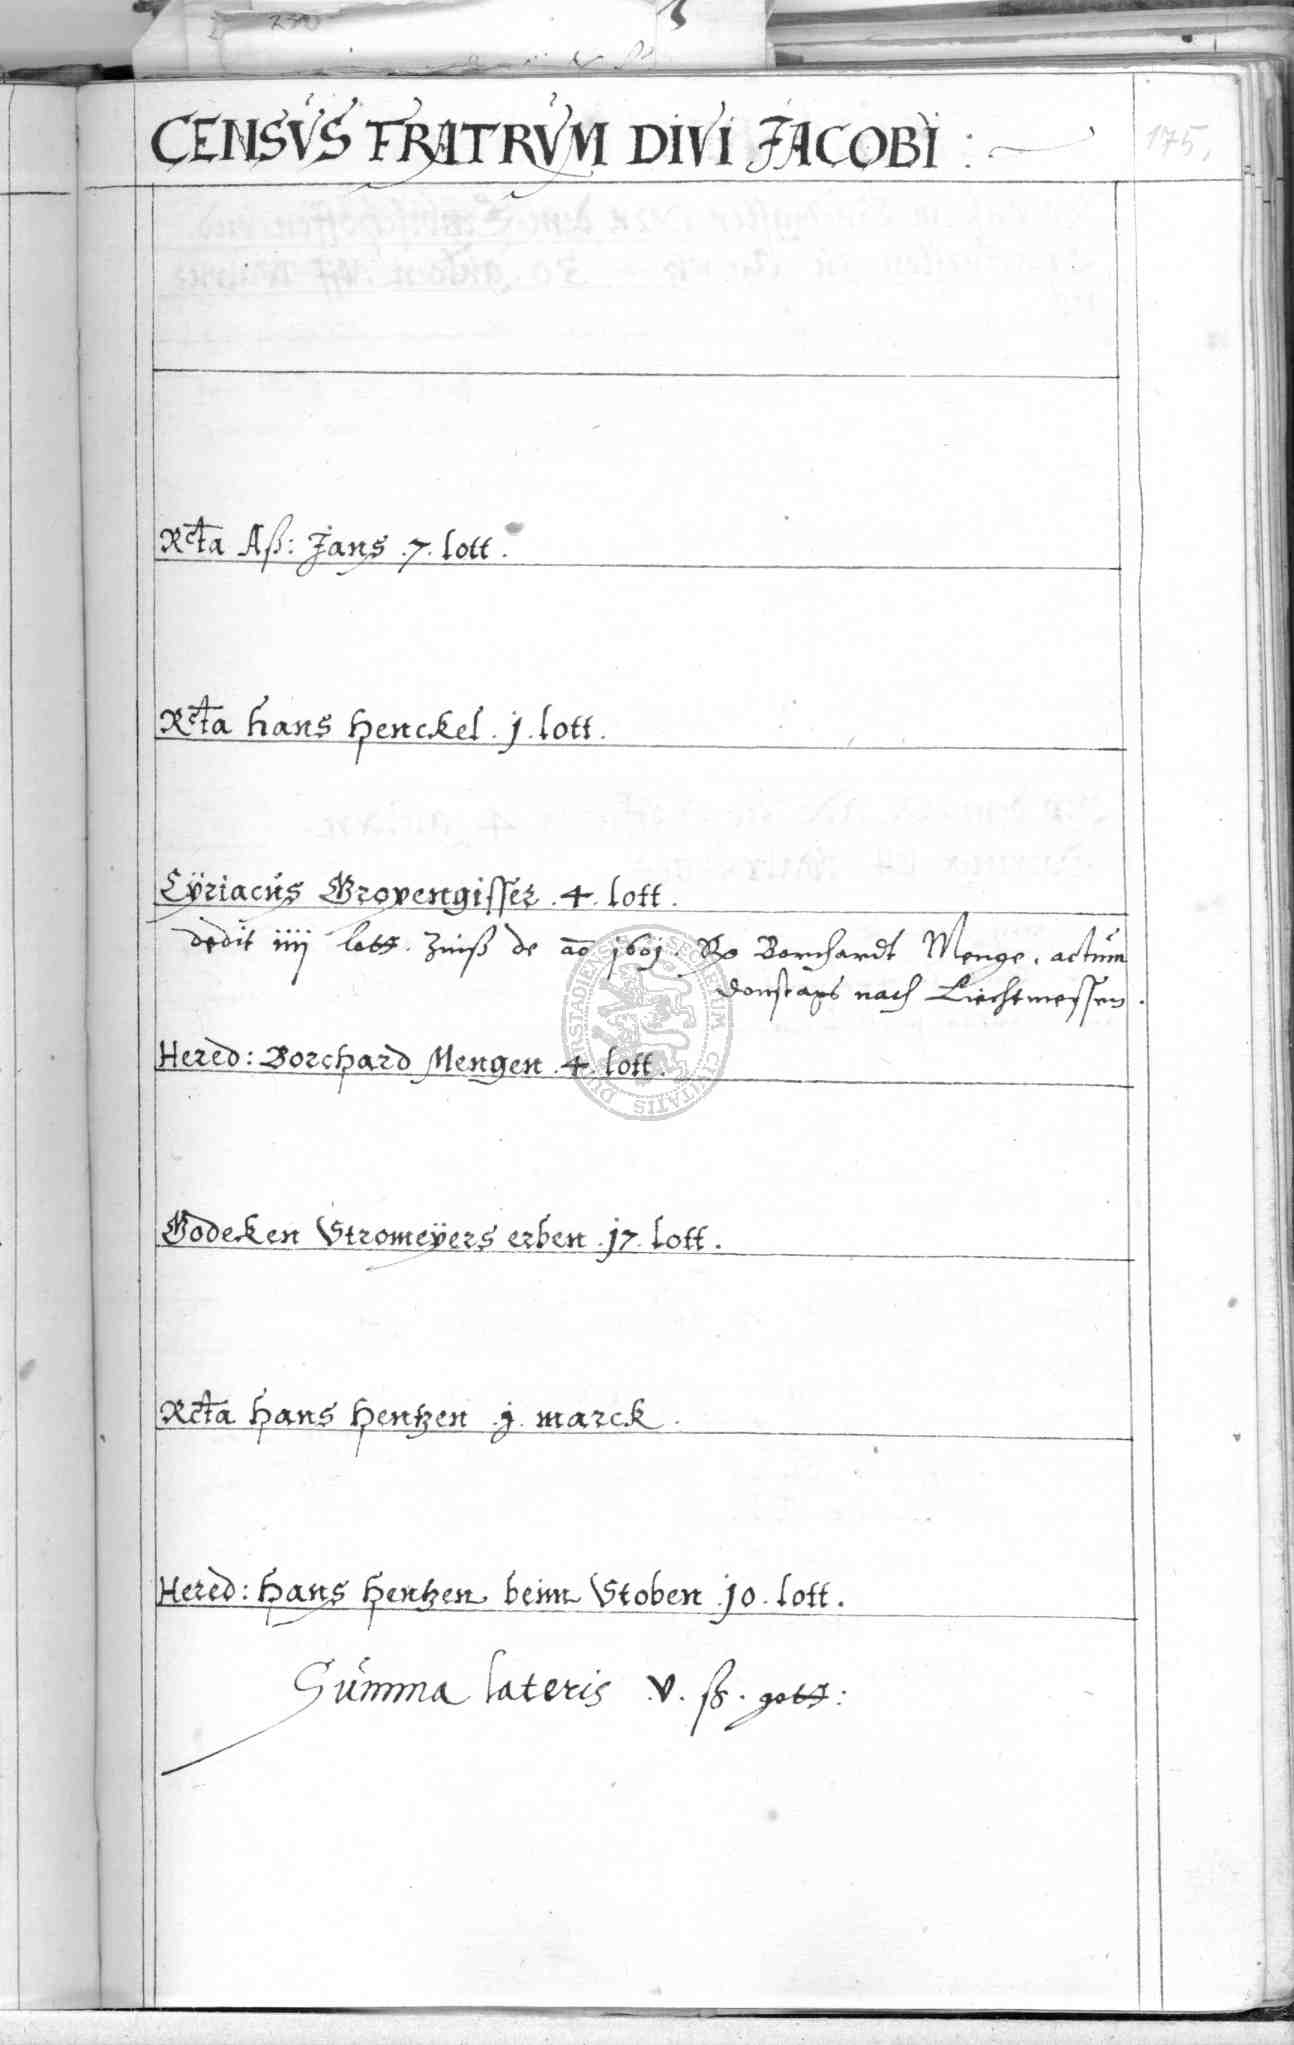 CENSVS FRATRVM DIVI JACOBI :
175.
Rcta Aß: Jans . 7. lott .
Rcta hans henckel . j . lott .
Cÿriacus Gropengisser . 4 . lott .
dedit iiij lott . Zinß de ao 1601 . Rp Borchardt Menge . actum
donstags nach Liechtmessen .
Hered : Borchard Mengen . 4 . lott .
Godeken Stromeÿers erben . j7 . lott .
Rcta hans hentzen . j . marck .
Hered : hans hentzen beim Stoben . jo . lott .
Summa lateris . v . ß . gott :
DUDERSTADIENSIS SECRETUM CIVITATIS